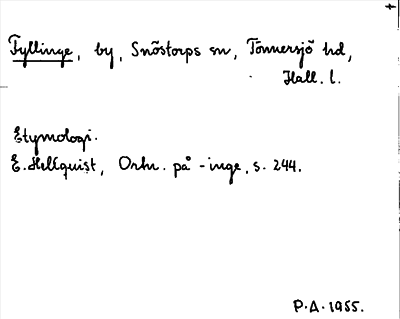 Fyllinge, by, Snöstorps sn, Tönnersjö hd,
Hall. l.
Etymologi.
E. Hellquist, Ortn. på -inge, s. 244.
P.A. 1955.